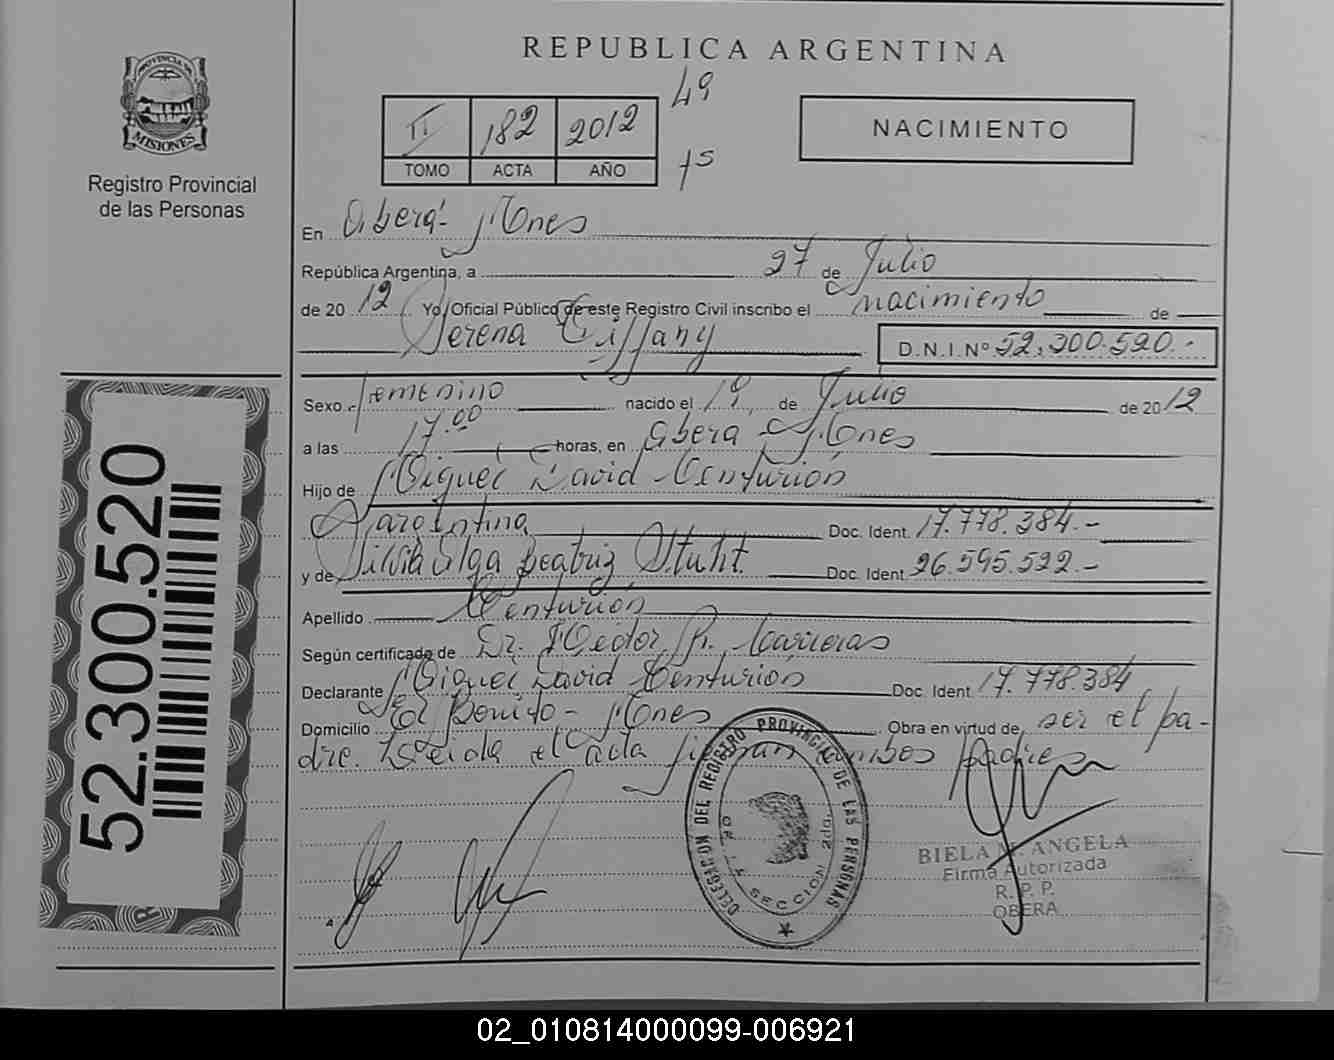 PROVINCIA DE
MISIONES
Registro Provincial
de las Personas
REPUBLICA ARGENTINA
49
II 182 2012
TOMO ACTA AÑO
75
NACIMIENTO
En Oberá - Mnes
República Argentina, a 27 de Julio
de 2012 Yo, Oficial Público de este Registro Civil inscribo el nacimiento de
Serena Tiffany D.N.I. Nº 52.300.520.-
Sexo femenino nacido el 19 de Julio de 2012
a las 17.00 horas, en Oberá - Mnes
Hijo de Miguel David Centurión
Argentina Doc. Ident. 17.778.384.-
y de Silvia Olga Beatriz Stuht Doc. Ident. 26.595.522.-
Apellido Centurión
Según certificado de Dr. Hector R. Carreras
Declarante Miguel David Centurión Doc. Ident. 17.778.384
Domicilio Bonito - Mnes Obra en virtud de ser el pa-
dre. Leída el acta firman ambos padres
52.300.520
DELEGACION DEL REGISTRO PROVINCIAL DE LAS PERSONAS
SECCION 2da.
BIELA M. ANGELA
Firma Autorizada
R. P. P.
OBERA
02_010814000099-006921